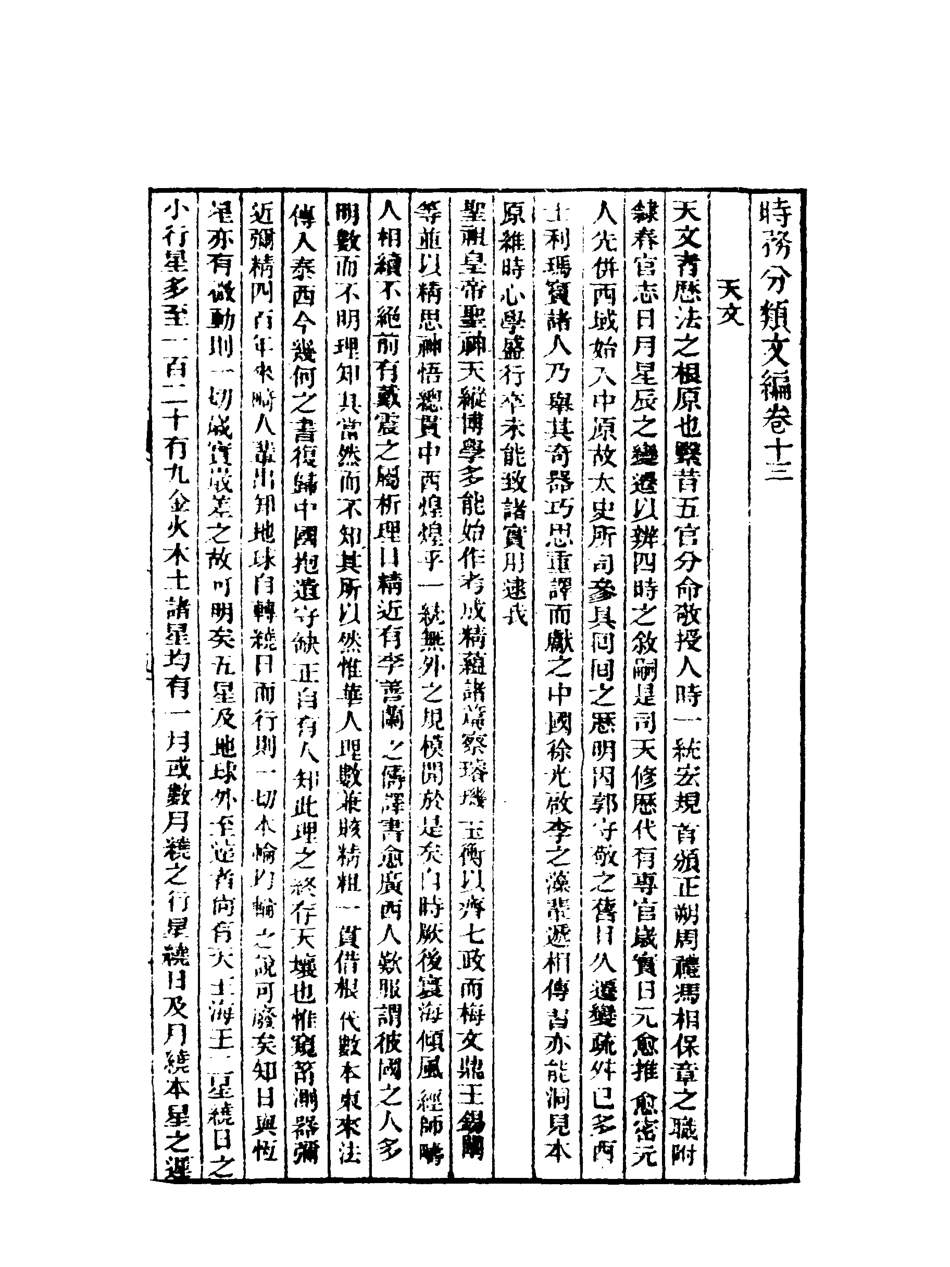 時務分類文編卷十三
天文
天文者歴法之根原也緊昔五官分命敬授人時一統宏規首頒正朔周禮馮相保章之職附
隸春官志日月星辰之變遷以辨四時之敘嗣是司天修歴代有專官歲實日元愈推愈密元
人先併西域始入中原故太史所司參具回回之歴明因郭守敬之舊日久遷變疏舛已多西
士利瑪竇諸人乃舉其奇器巧思重譯而獻之中國徐光啟李之藻輩遞相傳習亦能洞見本
原維時心學盛行卒未能致諸實用逮我
聖祖皇帝聖神天縱博學多能始作考成精蘊諸篇察璿璣玉衡以齊七政而梅文鼎王錫闡
等並以精思神悟總貫中西煌煌乎一統無外之規模開於是矣自時厥後寰海傾風經師疇
人相續不絕前有戴震之屬析理日精近有李善蘭之儔譯書愈廣西人歎服謂彼國之人多
明數而不明理知其當然而不知其所以然惟華人理數兼賅精粗一貫借根代數本東來法
傳人泰西今幾何之書復歸中國抱遺守缺正自有人知此理之終存天壤也惟窺筩測器彌
近彌精四百年來疇人叢出知地球自轉繞日而行則一切本輪均輪之說可廢矣知日與恆
星亦有微動則一切歲實歲差之故可明矣五星及地球外至遠者尚有天王海王二星繞日之
小行星多至一百二十有九金火木土諸星均有一月或數月繞之行星繞日及月繞本星之遲